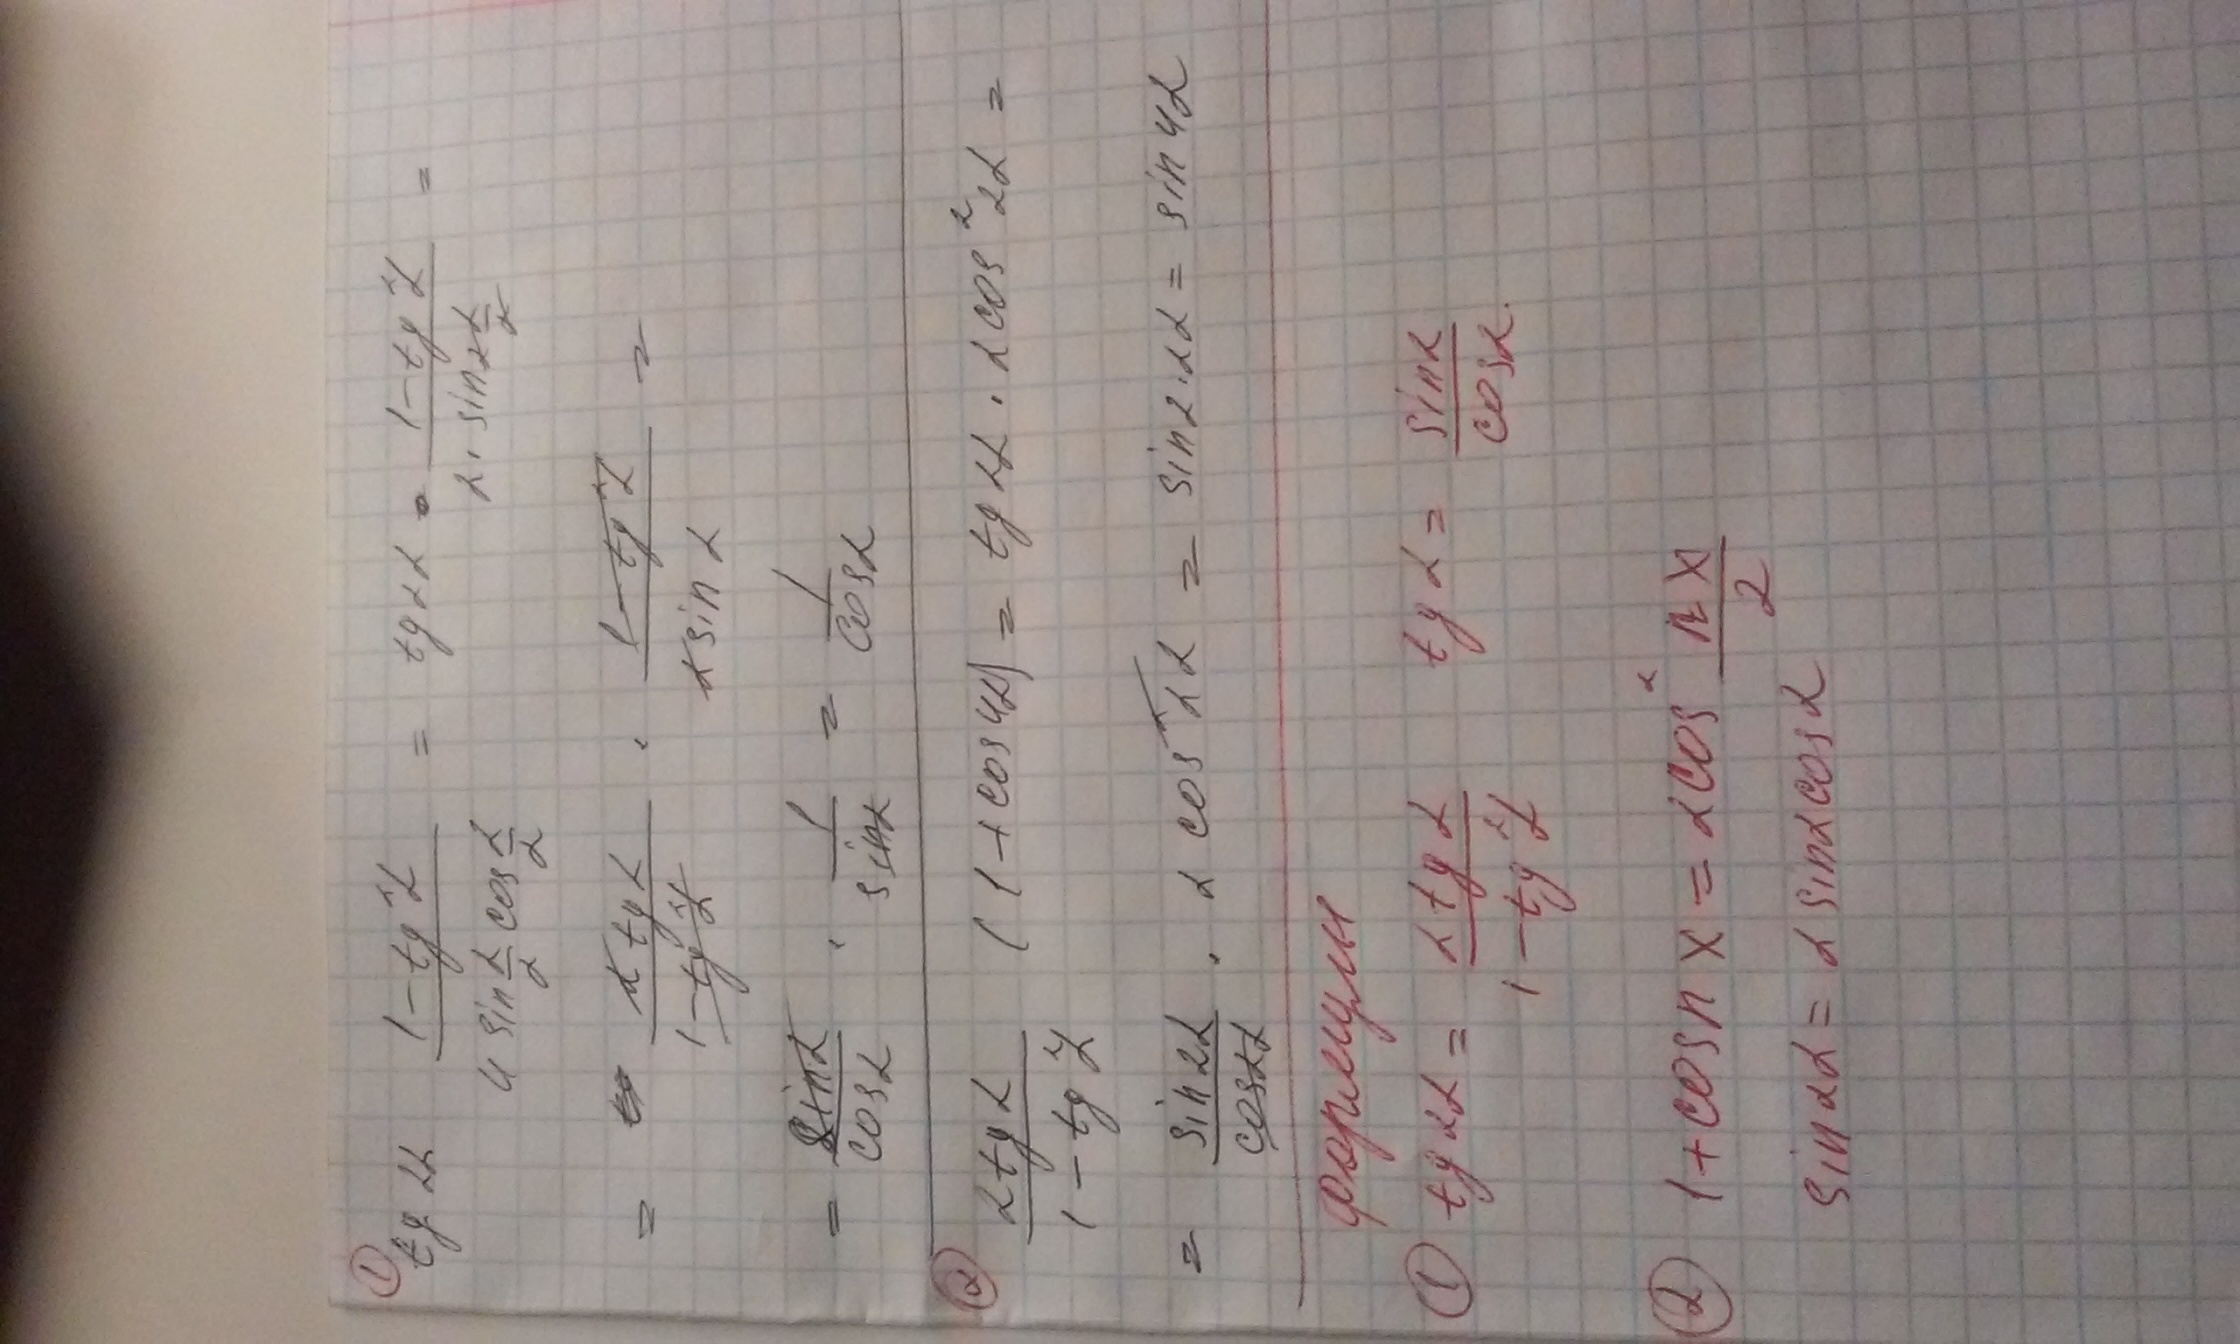 ① tg 2α (1 - tg²α)/(4 sin α/2 cos α/2) = tg 2α · (1 - tg²α)/(2 · sin 2 α/2) =
= (2 tg α)/(1 - tg²α) · (1 - tg²α)/(2 sin α) =
= sin α/cos α · 1/sin α = 1/cos α
② (2 tg α)/(1 - tg²α) (1 + cos 4α) = tg 2α · 2 cos² 2α =
= sin 2α/cos 2α · 2 cos² 2α = sin 2 · 2α = sin 4α
формулы
① tg 2α = (2 tg α)/(1 - tg²α) tg α = sin α/cos α.
② 1 + cos n x = 2 cos² (n x)/2
sin 2α = 2 sin α cos α